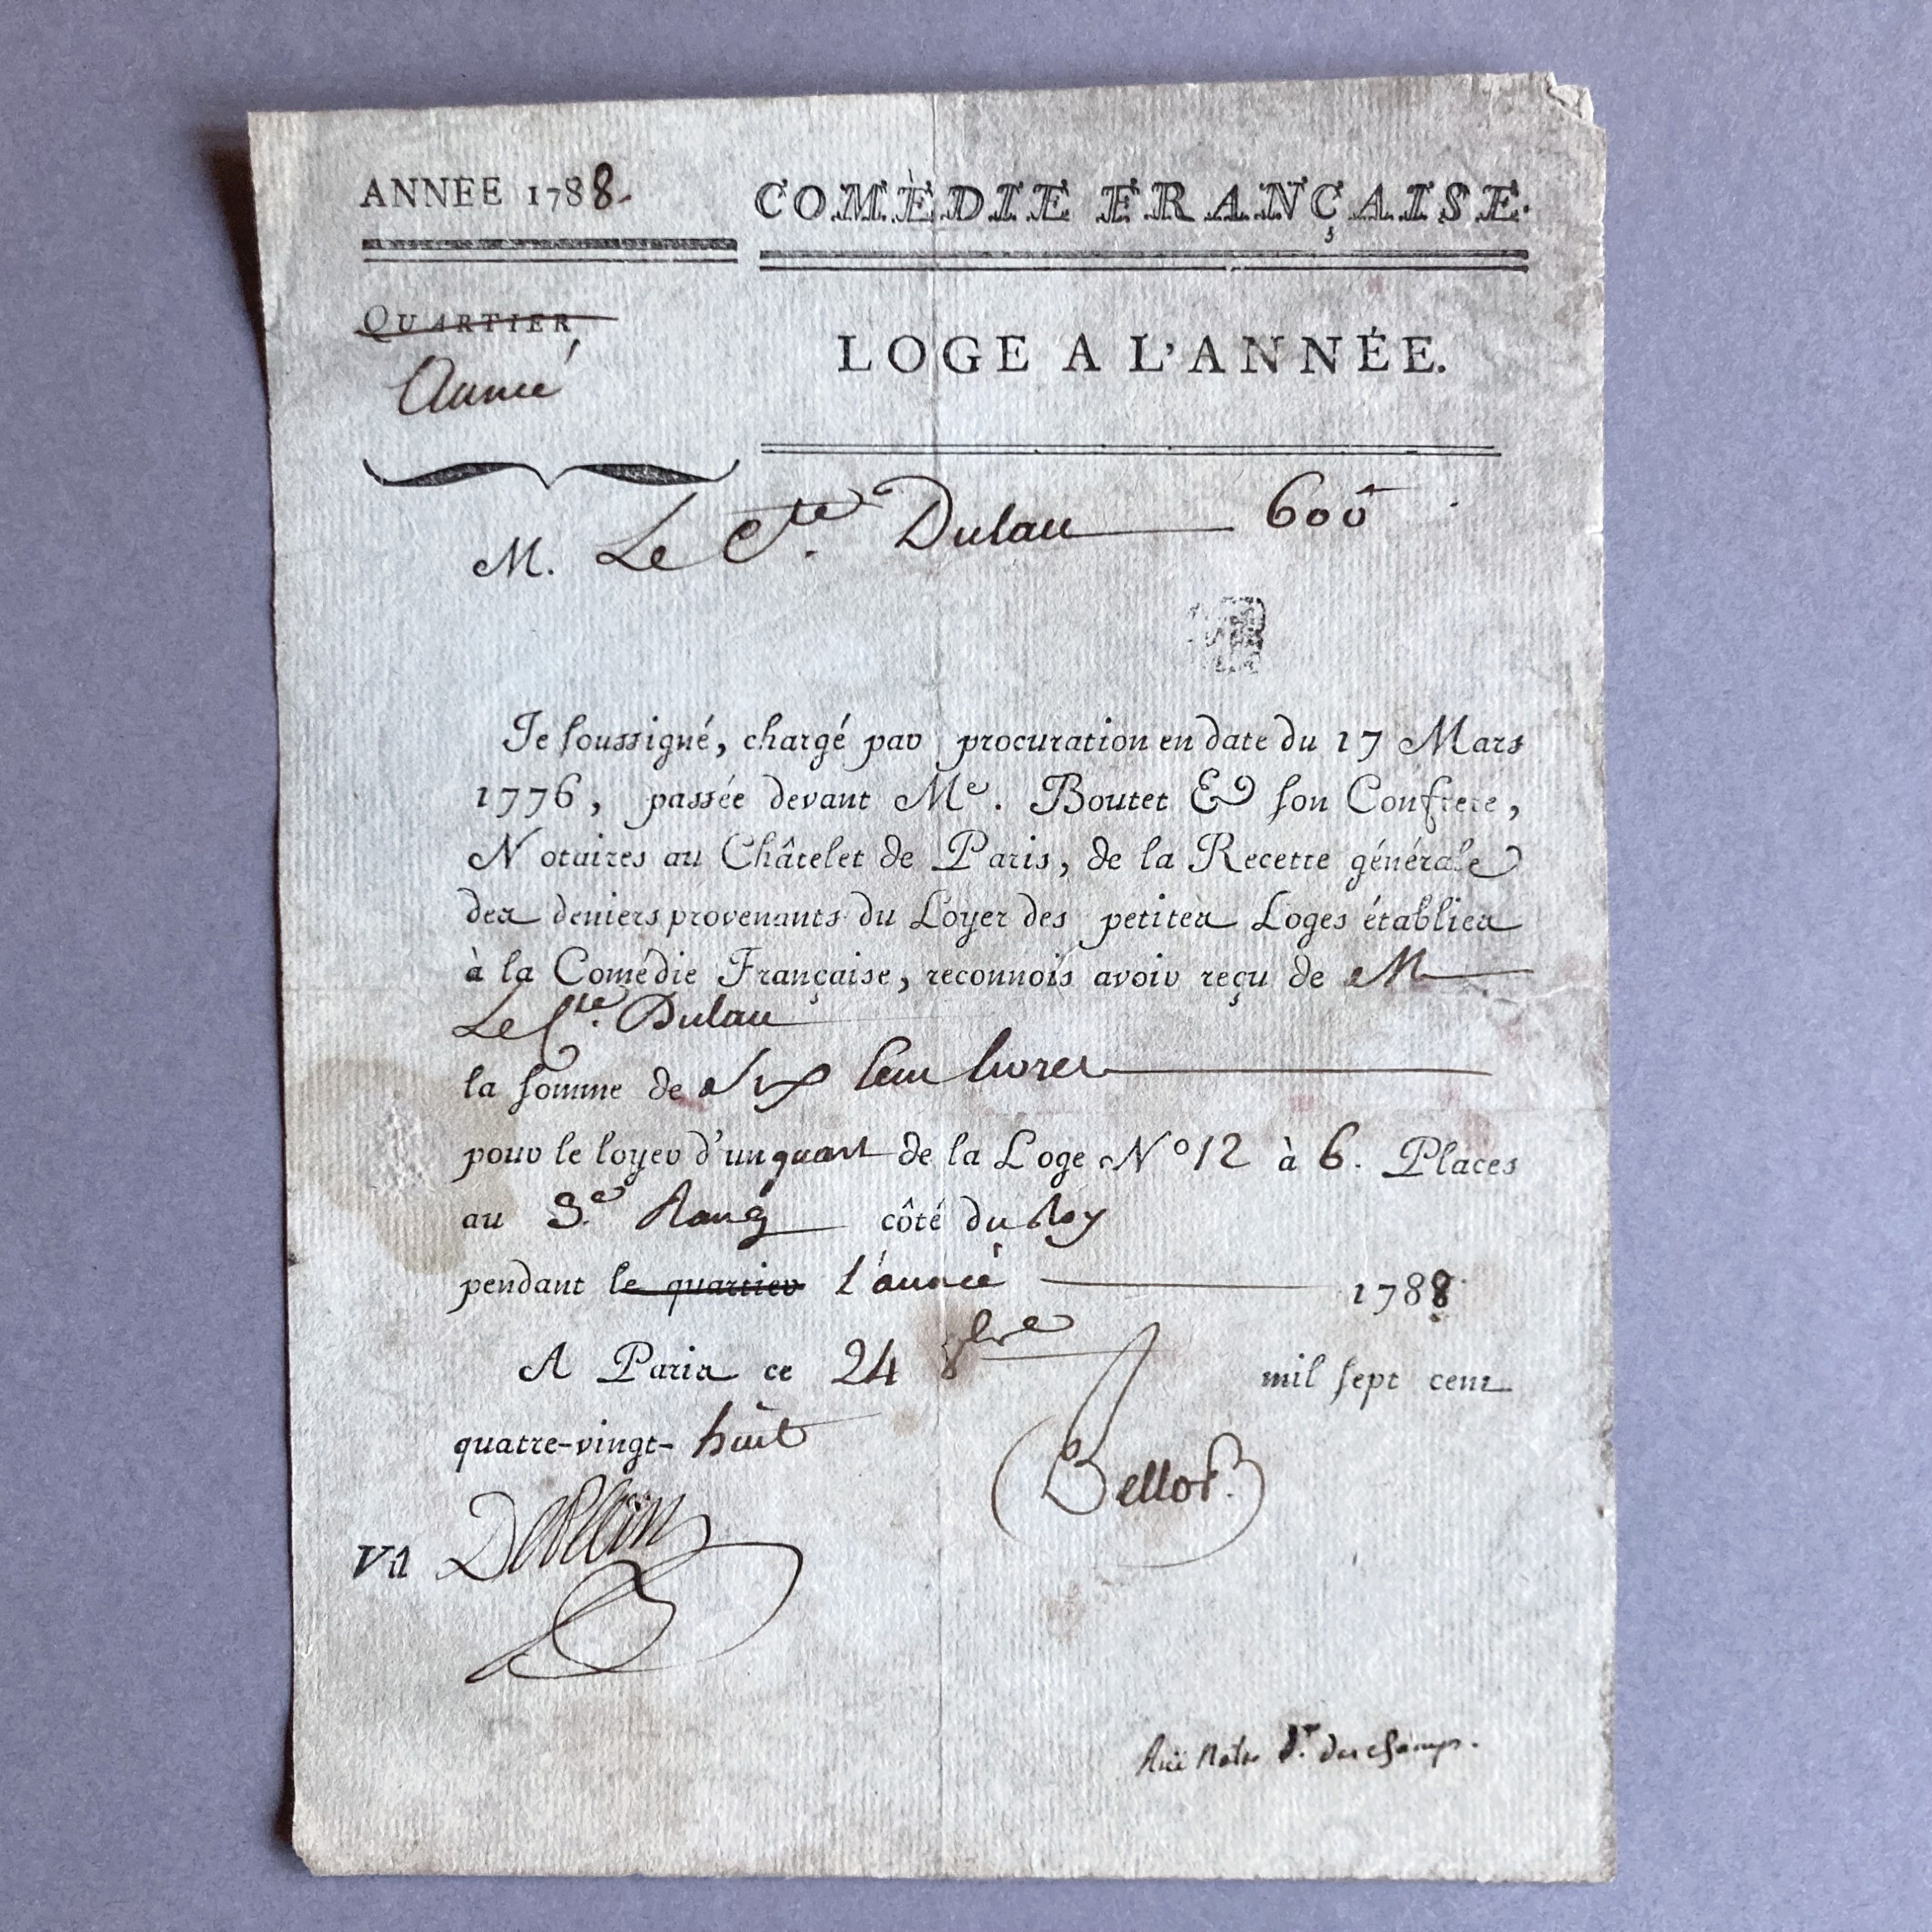 ANNÉE 1788.
COMÉDIE FRANÇAISE.
QUARTIER
Année
LOGE A L'ANNÉE.
M. Le Cte. Dulau 600
Je soussigné, chargé par procuration en date du 17 Mars
1776, passée devant Me. Boutet & son Confrere,
Notaires au Châtelet de Paris, de la Recette générale
des deniers provenants du Loyer des petites Loges établies
à la Comédie Française, reconnois avoir reçu de M
Le Cte. Dulau
la somme de Six Cent livres
pour le loyer d'un quart de la Loge No 12 à 6. Places
au 3.e Rang côté du Roy
pendant le quartier l'année 1788
A Paris ce 24 8bre mil sept cent
quatre-vingt-huit
Bellot.
Vu
Rue Notre D. des champs.